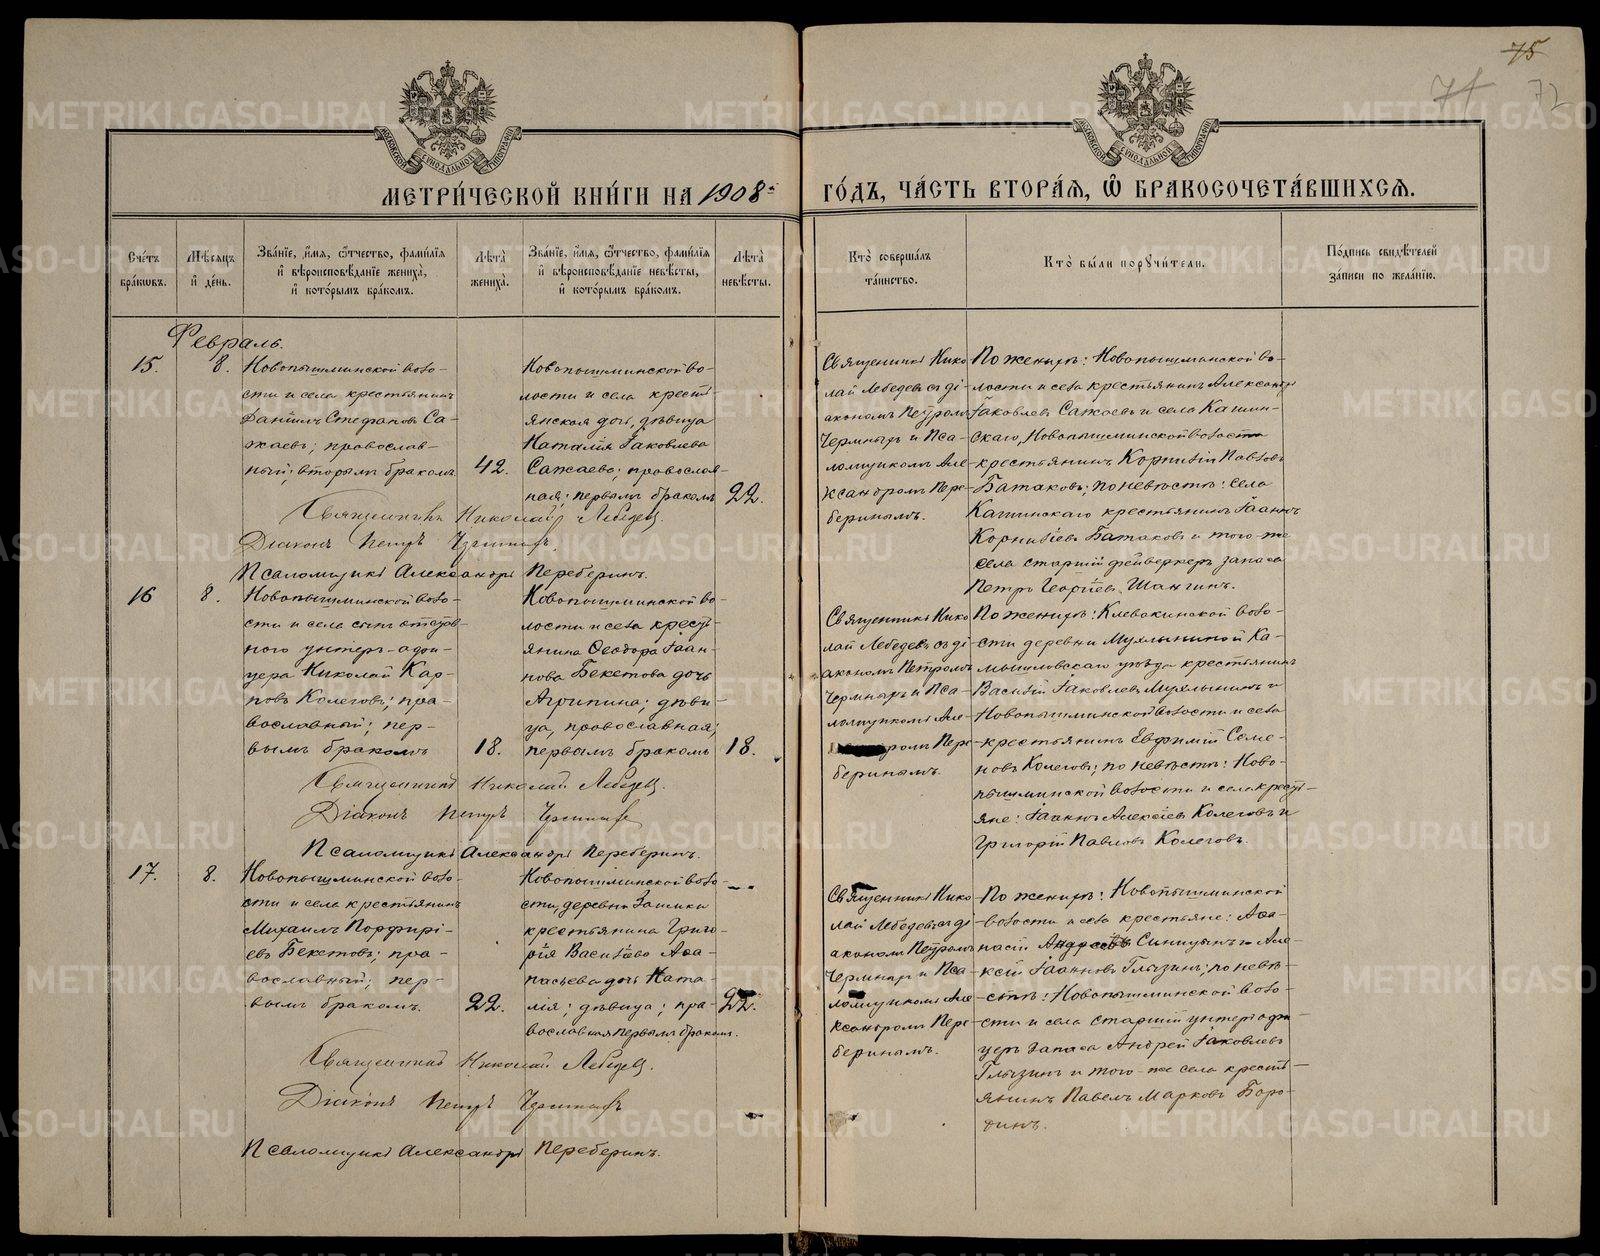 75
71 72
МЕТРИ́ЧЕСКОЙ КНИ́ГИ НА 1908й ГО́ДЪ, ЧА́СТЬ ВТОРА́Я, Ѡ҆ БРАКОСОЧЕТА́ВШИХСЯ.
Сче́тъ бра́кѡвъ.
Мѣ́сяцъ и҆ де́нь.
Зва́нїе, и҆́мя, ѻ҆́тчество, фами́лїя
и҆ вѣроисповѣ́данїе жениха̀,
и҆ кото́рымъ бра́комъ.
Лѣ́та жениха̀.
Зва́нїе, и҆́мя, ѻ҆́тчество, фами́лїя
и҆ вѣроисповѣ́данїе невѣ́сты,
и҆ кото́рымъ бра́комъ.
Лѣ́та невѣ́сты.
Кто̀ соверша́лъ та́инство.
Кто̀ бы́ли порꙋчи́тели.
По́дпись свидѣ́телей за́писи по жела́нїю.
Февраль.
15. 8.
Новопышминской воло-
сти и села крестьянинъ
Данiилъ Стефановъ Са-
жаевъ; православ-
ный; вторымъ бракомъ
42.
Новопышминской во-
лости и села кресть-
янская дочь, дѣвица
Наталiя Iаковлева
Сажаева; православ-
ная; первымъ бракомъ
22.
Священникъ Нико
лай Лебедевъ съ дi-
акономъ Петромъ
и Пса-
ломщикомъ Але-
ксандромъ Пере-
беринымъ.
По женихѣ: Новопышминской во-
лости и села крестьянинъ Александръ
Iаковлевъ Сажаевъ и села Кашин-
скаго, Новопышминской волости
крестьянинъ Корнилiй Павловъ
Батаковъ; по невѣстѣ: села
Кашинскаго крестьянинъ Iоаннъ
Корнилiевъ Батаковъ и того-же
села старшiй фейверкеръ запаса
Петръ Георгiевъ Шангинъ.
Священникъ Николай Лебедевъ.
Дiаконъ Петръ
Псаломщикъ Александръ Переберинъ.
16 8.
Новопышминской воло-
сти и села сынъ отстав-
ного унтеръ-офи-
цера Николай Кар-
повъ Колеговъ; пра-
вославный; пер-
вымъ бракомъ
18.
Новопышминской во-
лости и села кресть-
янина Ѳеодора Iоан-
нова Бекетова дочь
Агрипина; дѣви-
ца, православная;
первымъ бракомъ
18.
Священникъ Нико
лай Лебедевъ съ дi-
акономъ Петромъ
и Пса-
ломщикомъ Але-
ромъ Пере-
беринымъ.
По женихѣ: Клевакинской воло-
сти деревни Мухлыниной Ка-
мышловскаго уѣзда крестьянинъ
Василiй Iаковлевъ Мухлынинъ и
Новопышминской волости и села
крестьянинъ Евфимiй Семе-
новъ Колеговъ; по невѣстѣ: Ново-
пышминской волости и села кресть-
яне: Iоаннъ Алексiевъ Колеговъ и
Григорiй Павловъ Колеговъ.
Священникъ Николай Лебедевъ.
Дiаконъ Петръ
Псаломщикъ Александръ Переберинъ.
17. 8.
Новопышминской воло-
сти и села крестьянинъ
Михаилъ Порфирi-
евъ Бекетовъ; пра-
вославный; пер-
вымъ бракомъ.
22.
Новопышминской воло-
сти, деревни Заимки
крестьянина Григо-
рiя Василiева Аѳа-
насьева дочь Ната-
лiя; дѣвица; пра-
вославная первымъ бракомъ.
22.
Священникъ Нико
лай Лебедевъ съ дi-
акономъ Петромъ
и Пса-
ломщикомъ Але-
ксандромъ Пере-
беринымъ.
По женихѣ: Новопышминской
волости и села крестьяне: Аѳа-
насiй Андреевъ Синицынъ и Але-
ксiй Iоанновъ Глызинъ; по невѣ-
стѣ: Новопышминской воло-
сти и села старшiй унтеръ офи-
церъ запаса Андрей Iаковлевъ
Глызинъ и того-же села кресть-
янинъ Павелъ Марковъ Боро-
динъ.
Священникъ Николай Лебедевъ.
Дiаконъ Петръ
Псаломщикъ Александръ Переберинъ.
METRIKI.GASO-URAL.RU